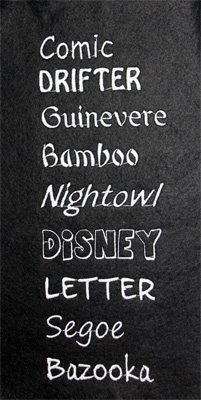 Comic
DRIFTER
Guinevere
Bamboo
Nightowl
DiSNEY
LETTER
Segoe
Bazooka